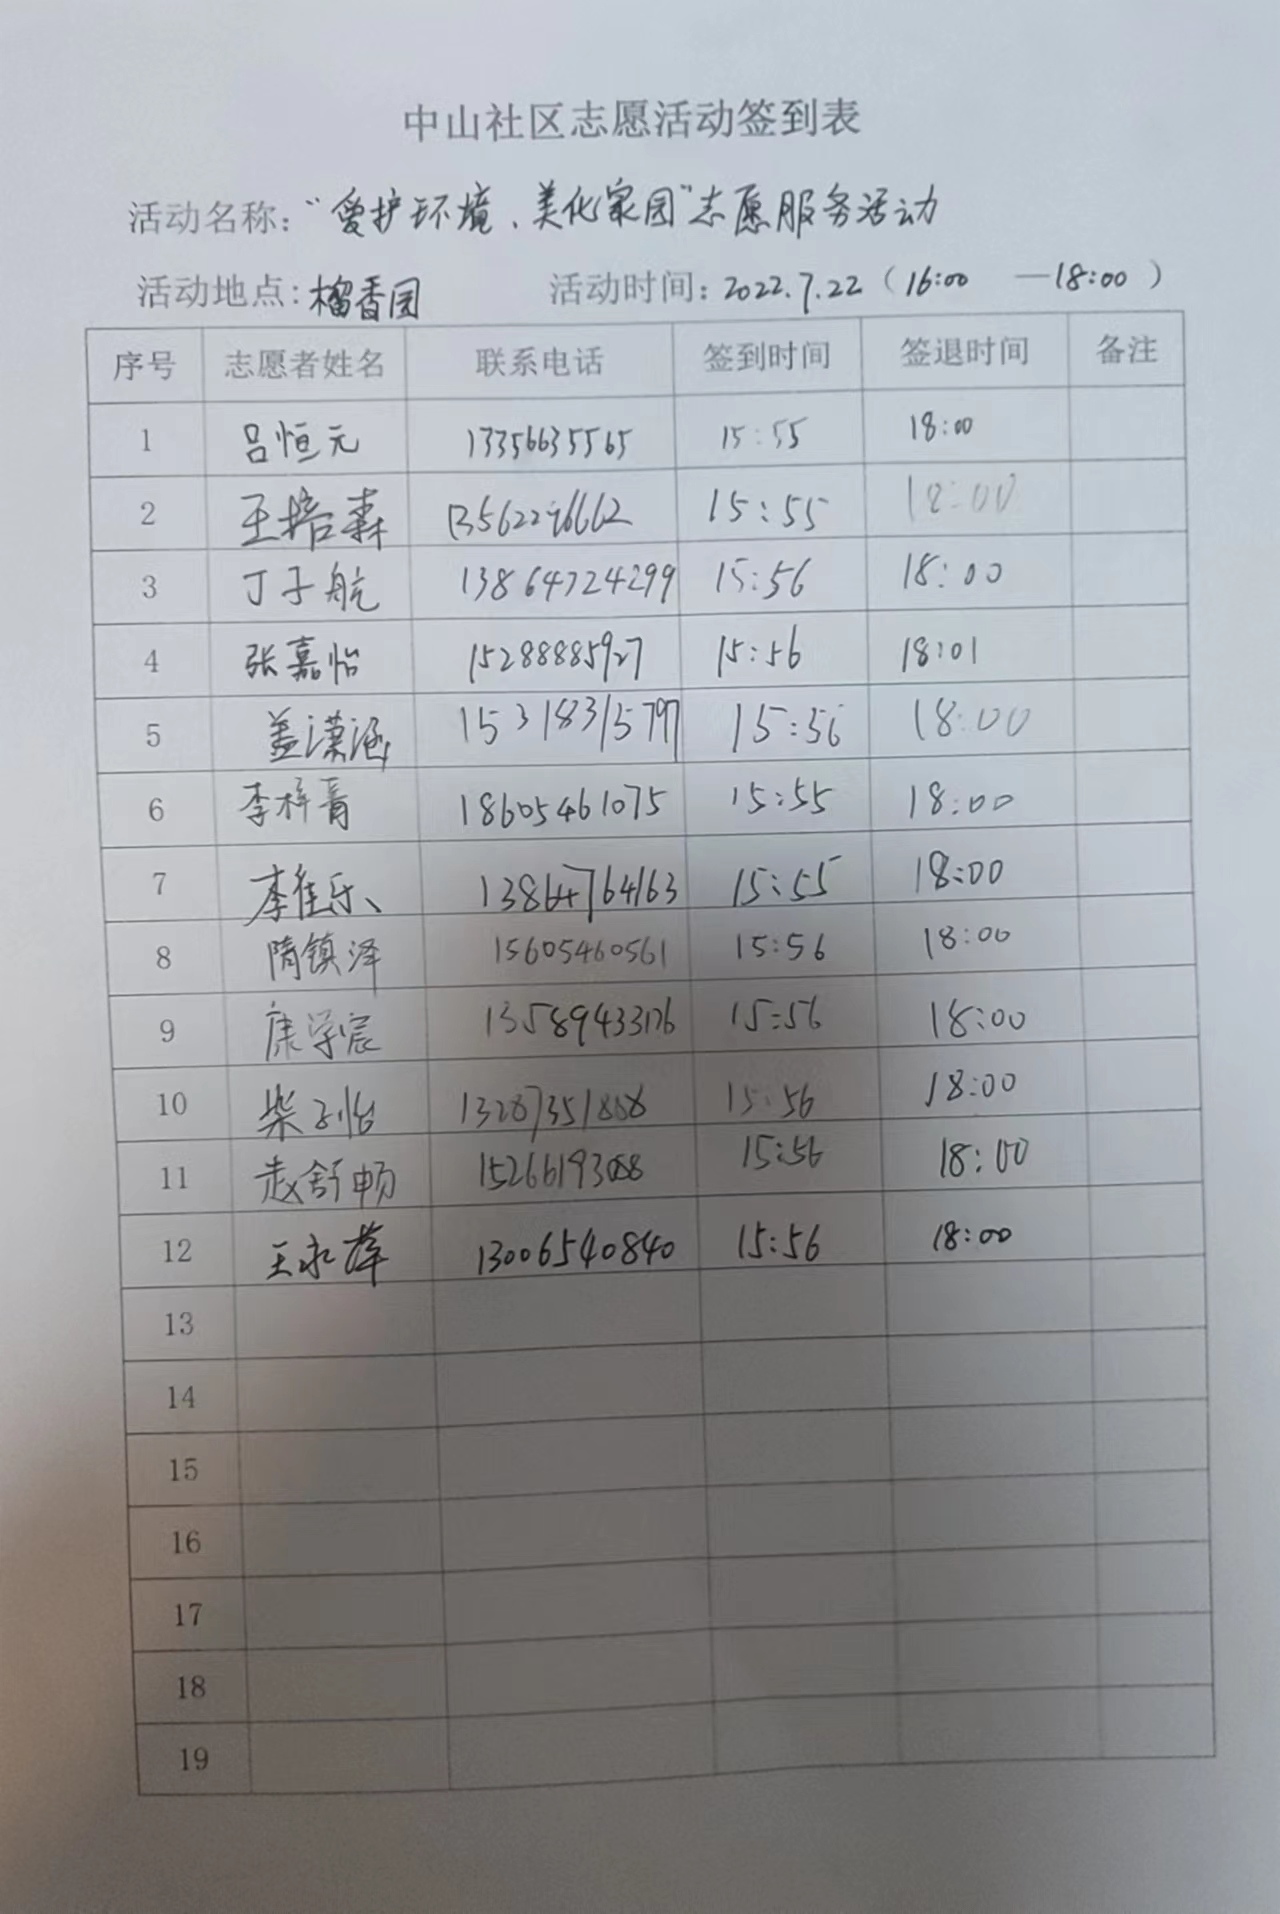 中山社区志愿活动签到表
活动名称："爱护环境、美化家园"志愿服务活动
活动地点：榴香园 活动时间：2022.7.22（16:00 —18:00）
序号 志愿者姓名 联系电话 签到时间 签退时间 备注
1 吕恒元 13356635565 15:55 18:00
2 王培森 15:55 18:00
3 丁子航 13864724299 15:56 18:00
4 张嘉怡 15288885927 15:56 18:01
5 盖潇涵 15318315797 15:56 18:00
6 李梓菁 18605461075 15:55 18:00
7 李佳乐 13864764163 15:55 18:00
8 隋镇泽 15605460561 15:56 18:00
9 康学宸 13589433176 15:56 18:00
10 柴子怡 15:56 18:00
11 赵舒畅 15:56 18:00
12 王永苹 13006540840 15:56 18:00
13
14
15
16
17
18
19